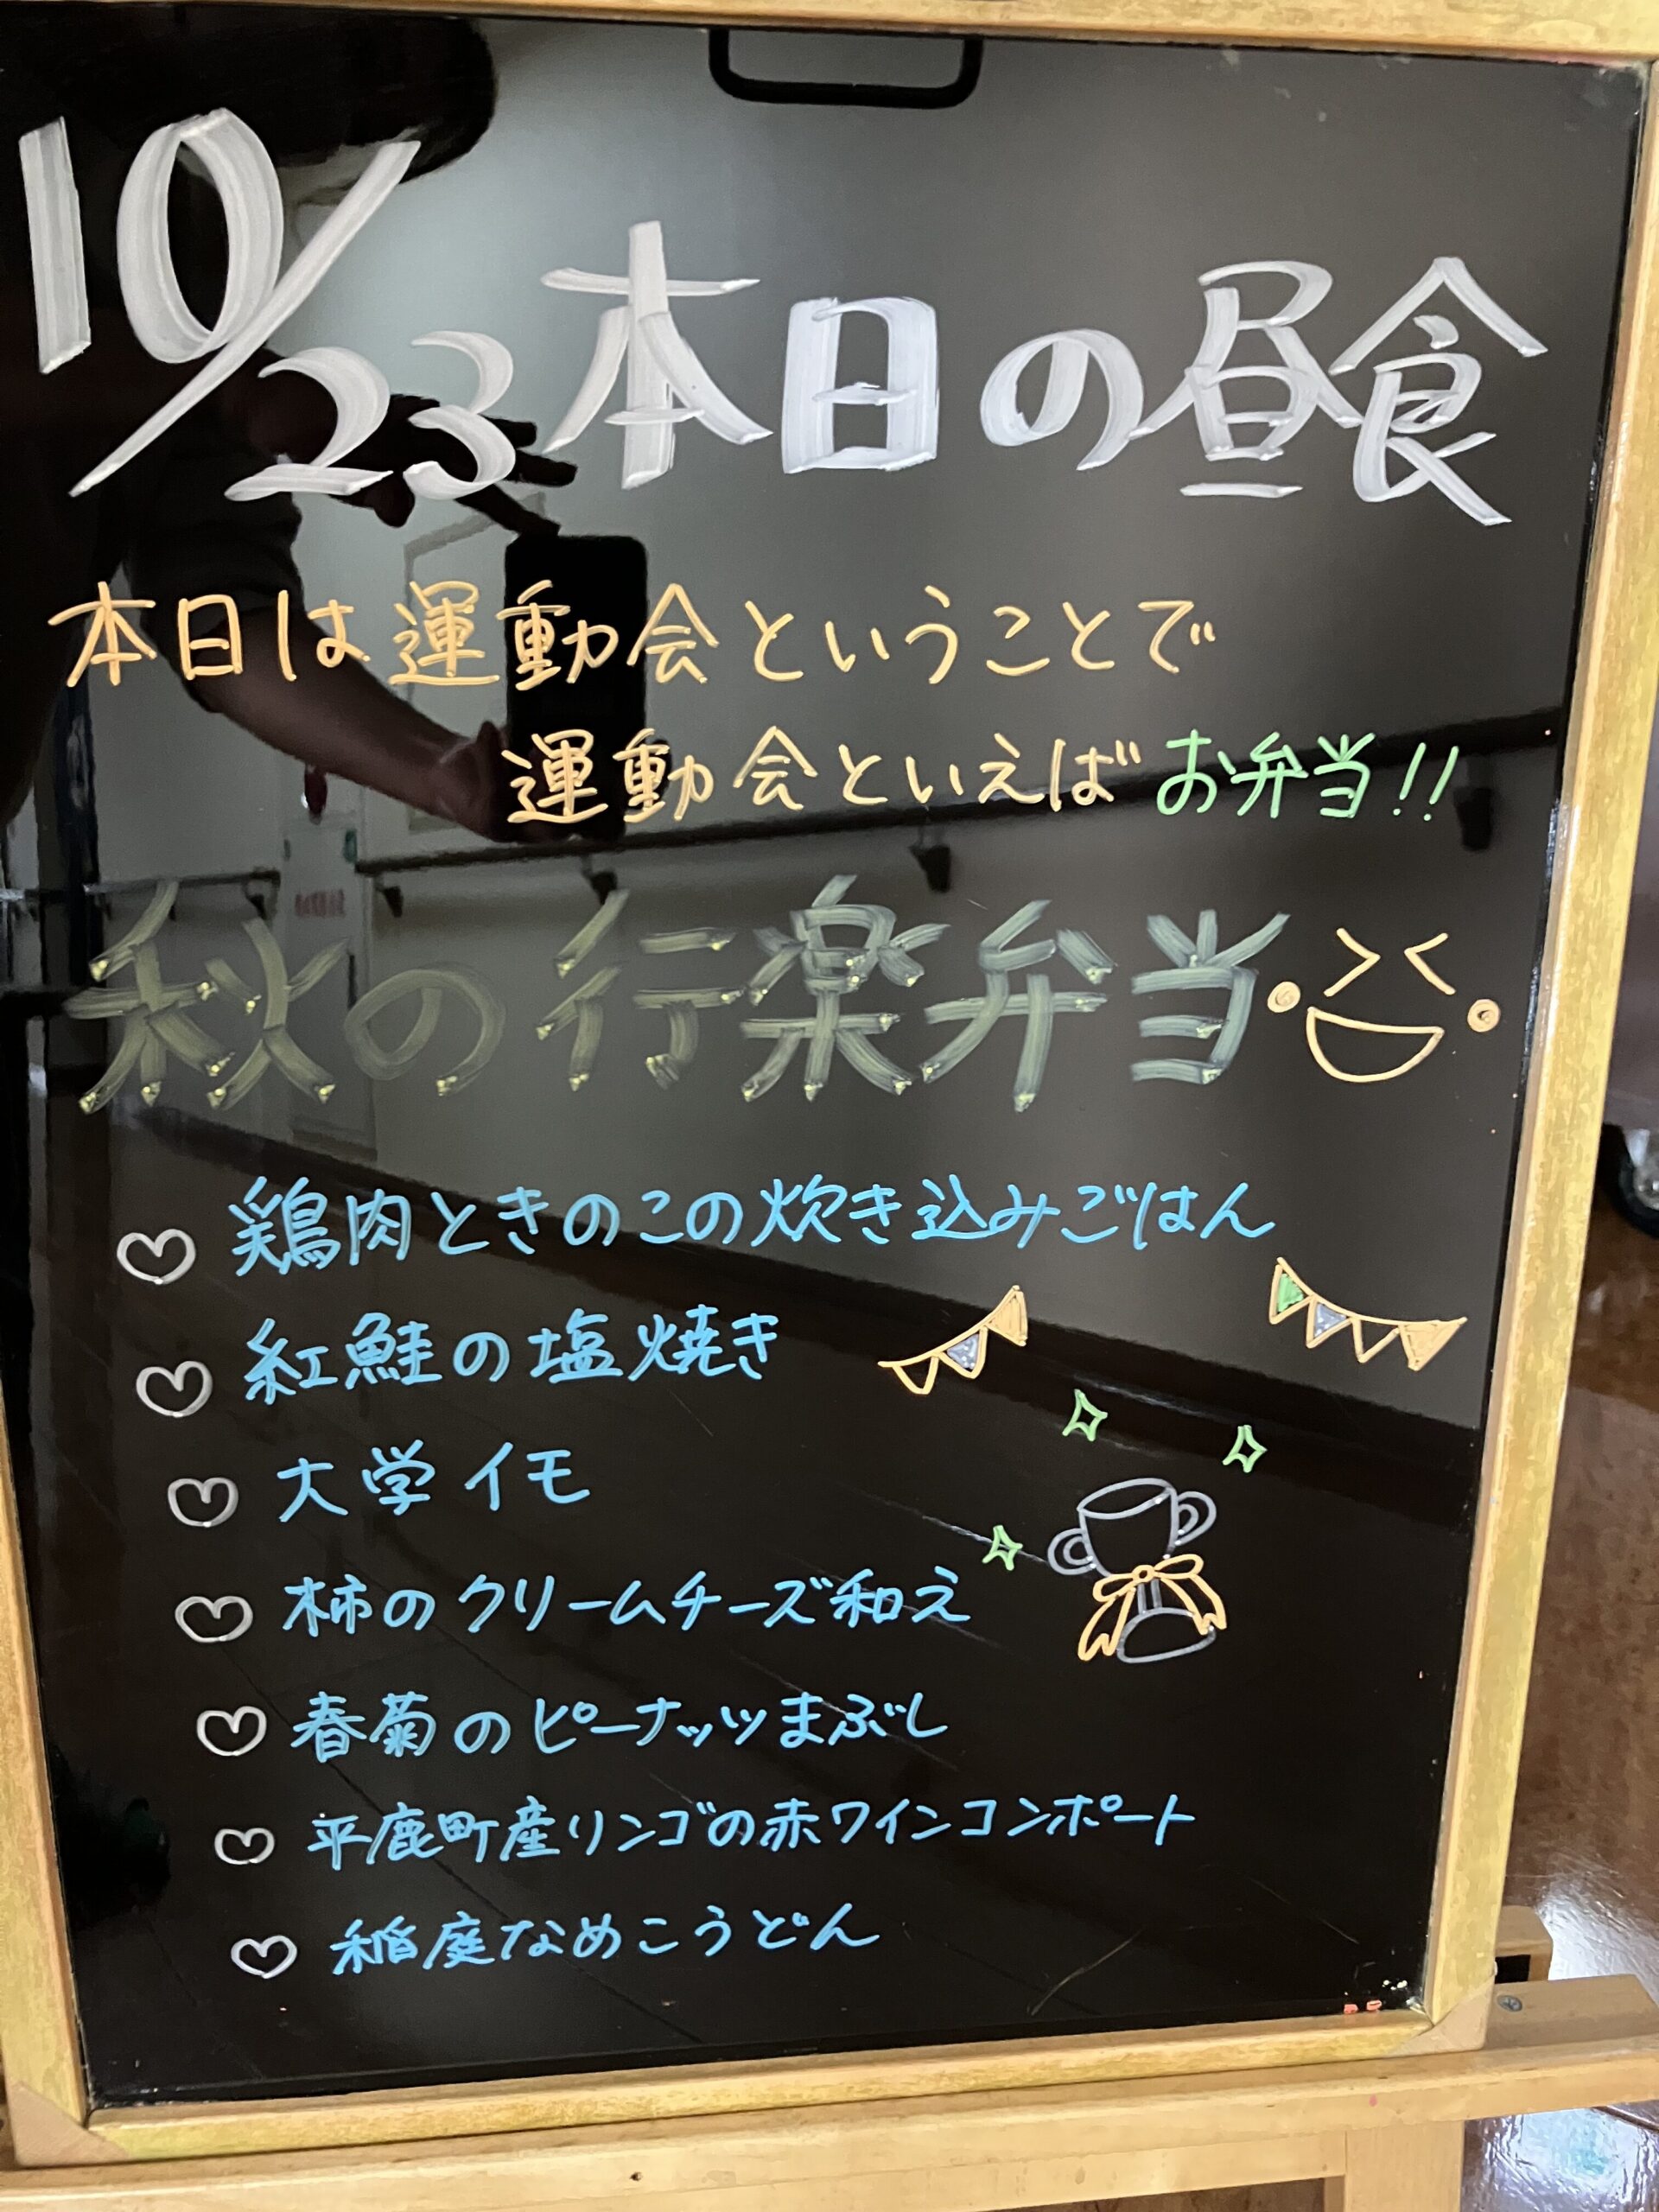 10/23 本日の昼食
本日は運動会ということで
運動会といえばお弁当!!
秋の行楽弁当
鶏肉ときのこの炊き込みごはん
紅鮭の塩焼き
大学イモ
柿のクリームチーズ和え
春菊のピーナッツまぶし
平鹿町産リンゴの赤ワインコンポート
稲庭なめこうどん